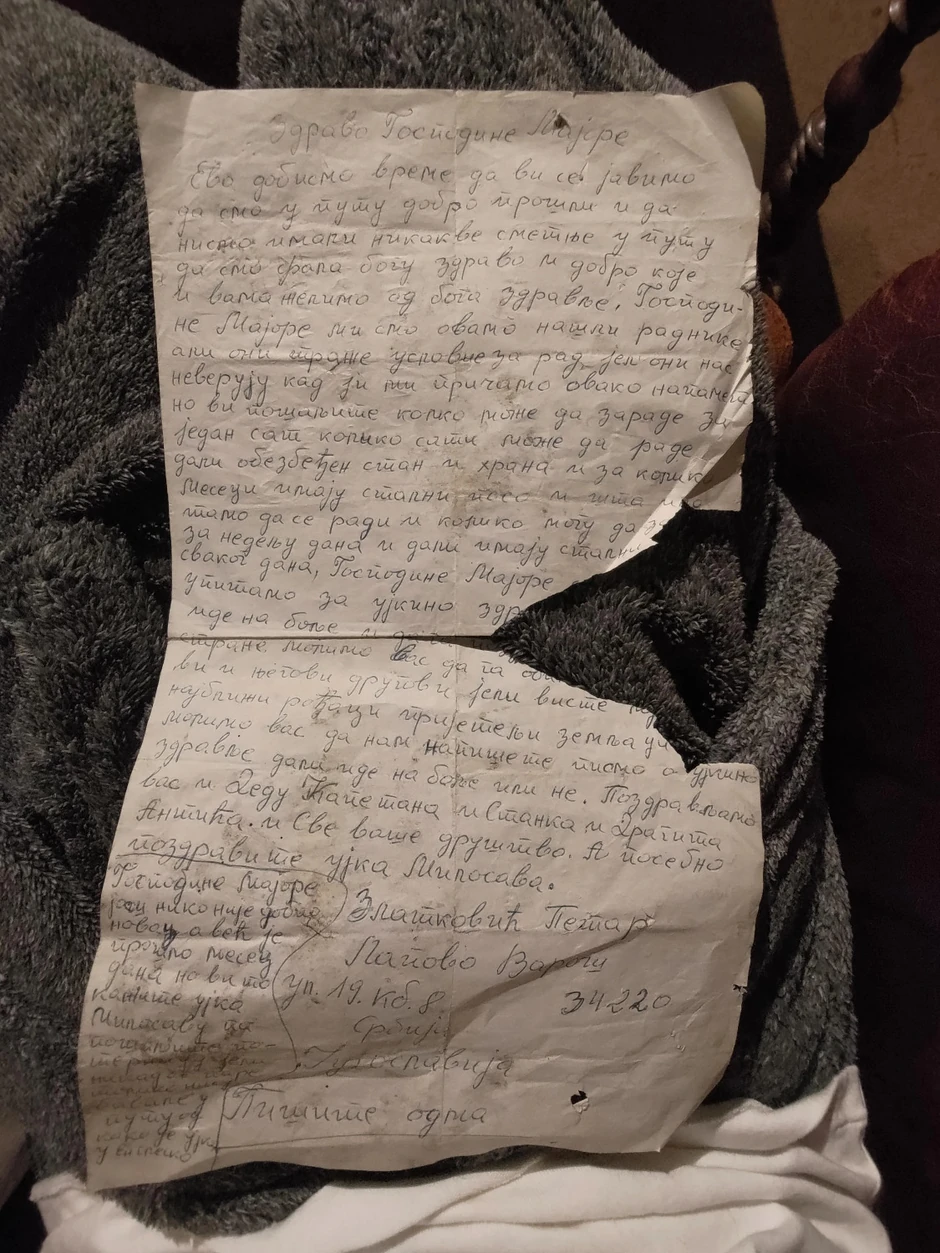 Здраво Господине Мајоре
Ево добисмо време да ви се јавимо
да смо у путу добро прошли и да
нисмо имали никакве сметње у путу
да смо фала богу здраво и добро које
и вама желимо од бога здравље. Господи-
не Мајоре ми смо овамо нашли раднике
али они траже услове за рад јел они нас
неверују кад ји ми причамо овако напамет
но ви пошаљите колко може да зараде за
један сат колико сати може да раде
дали обезбеђен стан и храна и за колико
Месеци имају стални посо и шта
тамо да се ради и колико могу да
за недељу дана и дали имају стални
сваког дана, Господине Мајоре
упитамо за ујкино
иде на боље и
стране молимо вас да га
ви и његови другви јели висте
најближи рођаци пријетељи земљаци
молимо вас да нам напишете писмо о ујкино
здравље дали иде на боље или не. Поздрављамо
вас и Деду Капетана и Станка и Драгита
Антића. и Све ваше друштво. А посебно
поздравите ујка Милосава.
Господине Мајоре
још нико није добио
новац а већ је
прошло месец
дана но ви то
кажите ујка
Милосаву да
Златковић Петар
Лапово Варош
ул. 19. кб. 8.
34220
Србија
Југославија
Пишите одма